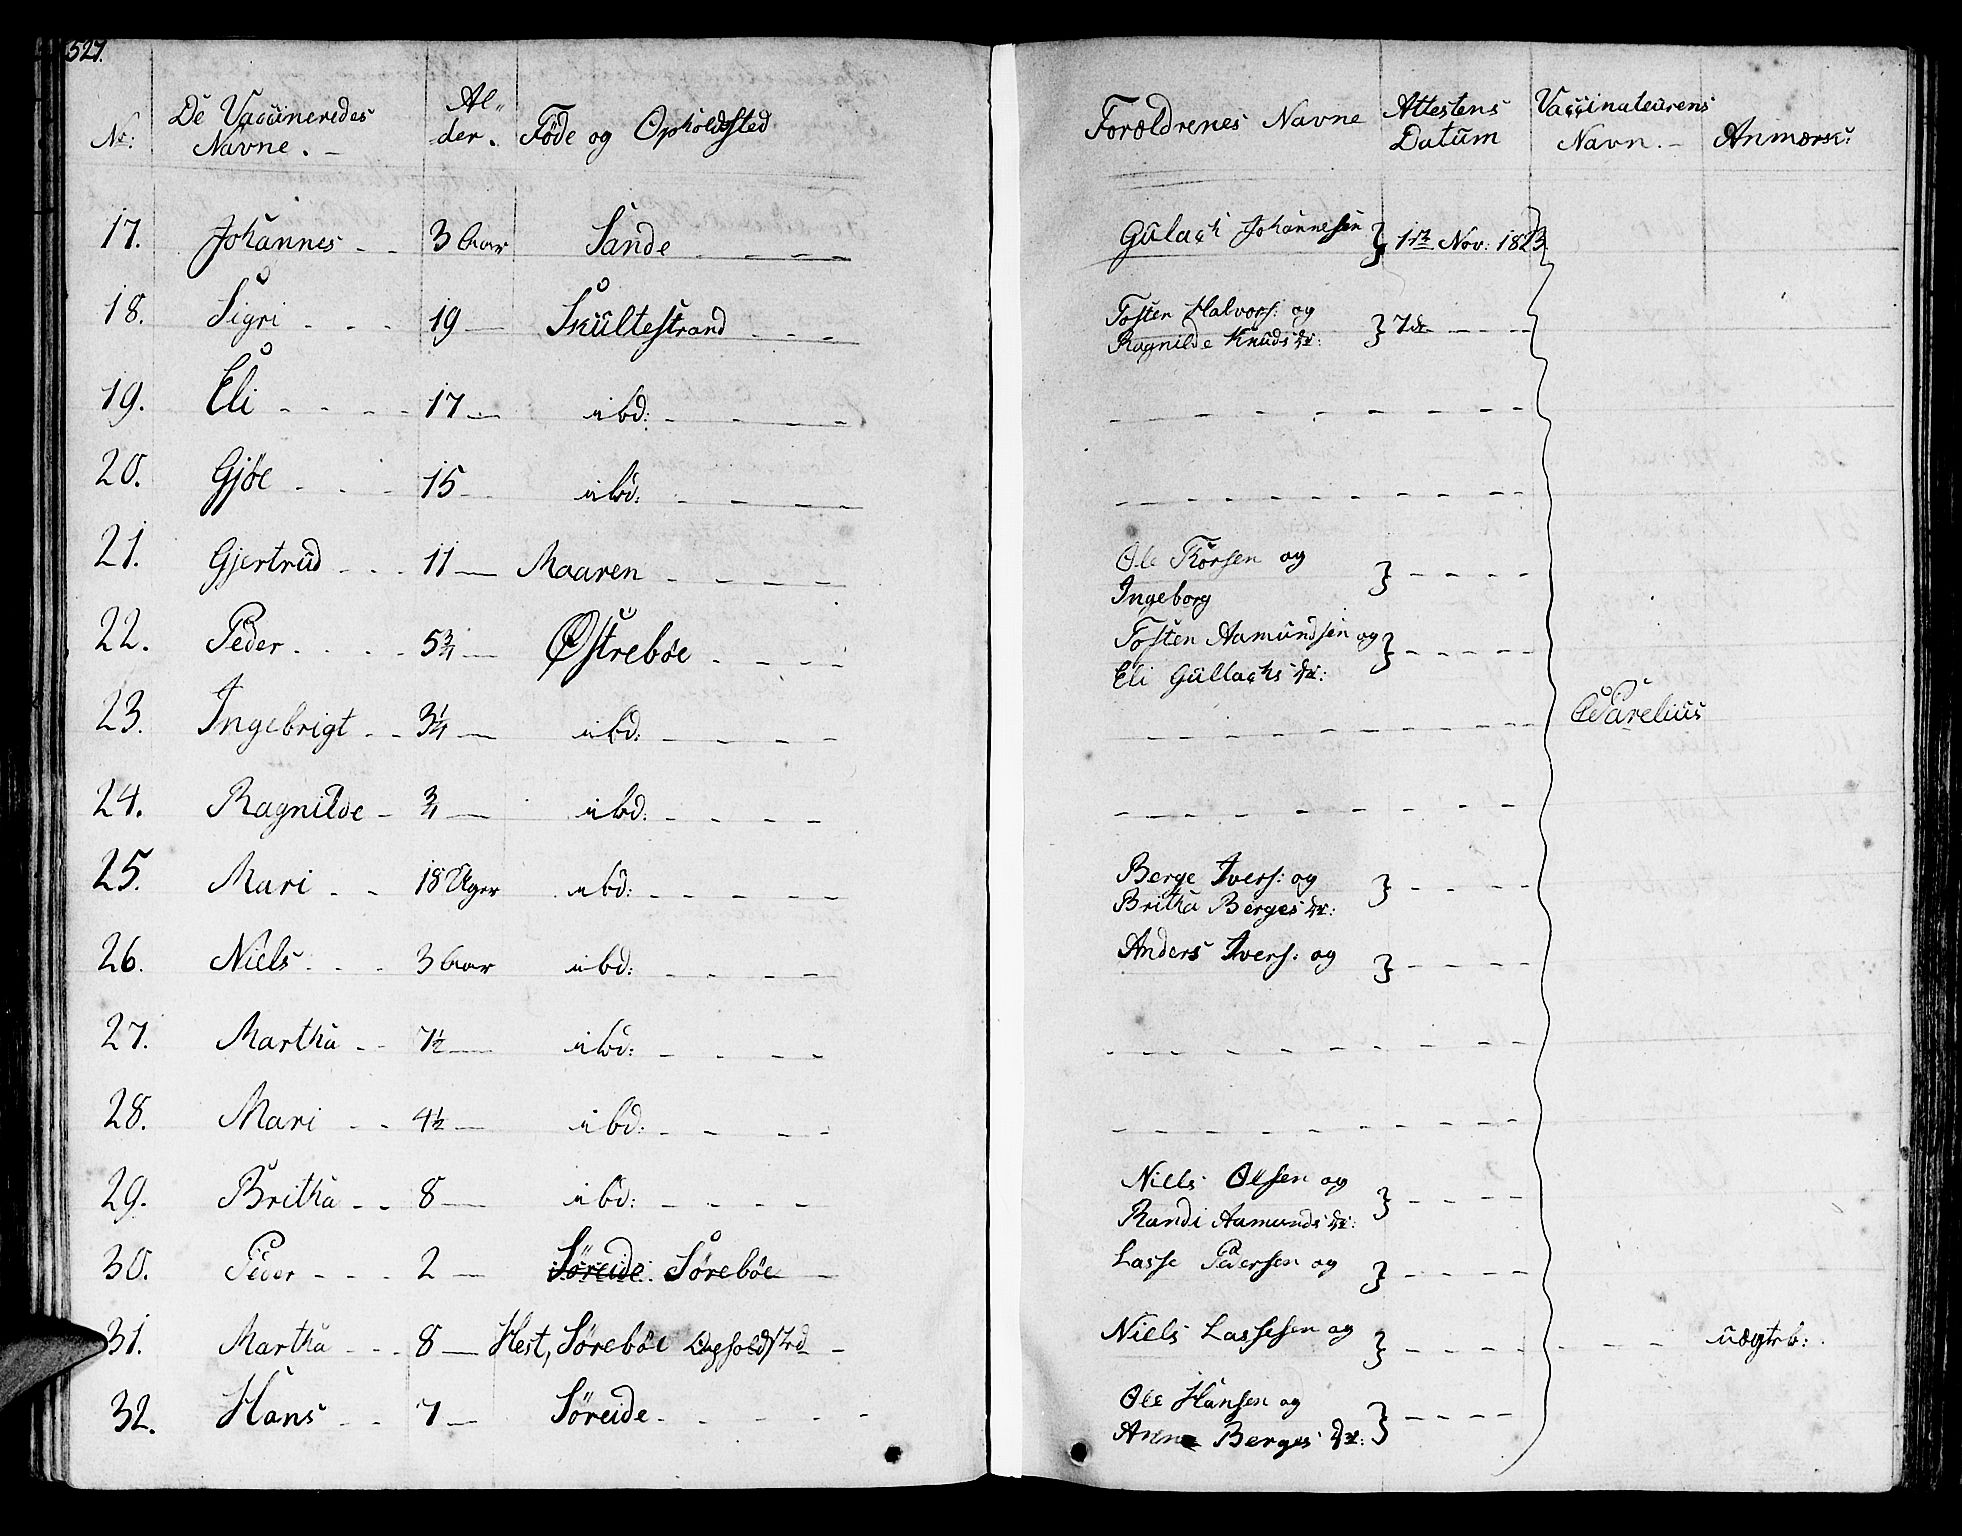 527.
Nr: De Vaccineredes Navne. – Al„der. Føde og Opholdsted Forældrenes Navne Attestens Datum Vaccinateurens Navn. – Anmærk:
17. Johannes - - 3 Aar Sande - - - - Gulach Johannesen } 1ste Nov: 1823.
18. Sigri - - - 19 — Skultestrand - - - Tosten Halvors: og } 7de - - - -
Ragnilde Knuds dr:
19. Eli - - - - 17 — ibd: - - - - - - - - - - - -
20. Gjøe - - - 15 - ibd: - - - - - - - - - - - -
21. Gjertrud - - - 11 — Maaren - - - - Ole Thorsen og } - - - - -
Ingeborg
22. Peder - - - - 5¾ — Østrebøe - - - - Tosten Aamundsen og } - - - - -
Eli Gullachs dr:
23. Ingebrigt - - 3¼ — ibd: - - - - - - - - - - - - Parelius
24. Ragnilde - ¾ — ibd: - - - - - - - - - - - -
25. Mari - - 18 Uger ibd: - - - - Berge Ivers: og } - - - -
Britha Berges dr:
26. Niels - - - 3 Aar ibd: - - - - Anders Ivers: og } - - - -
27. Martha - - 7½ — ibd: - - - - - - - - - - - -
28. Mari - - 4½ — ibd: - - - - - - - - - - - -
29. Britha - - 8 — ibd: - - - - Niels Olsen og } - - - -
Randi Aamunds dr:
30. Peder - - - 2 — Søreide Sørebøe — Lasse Pedersen og } - - - -
31. Martha - - - 8 — Hest, Sørebøe Opholdsted - Niels Lassesen og } - - - - - - - uægteb:
32. Hans - - 7 — Søreide - - - - - Ole Hansen og } - - - -
Anne Berges dr: